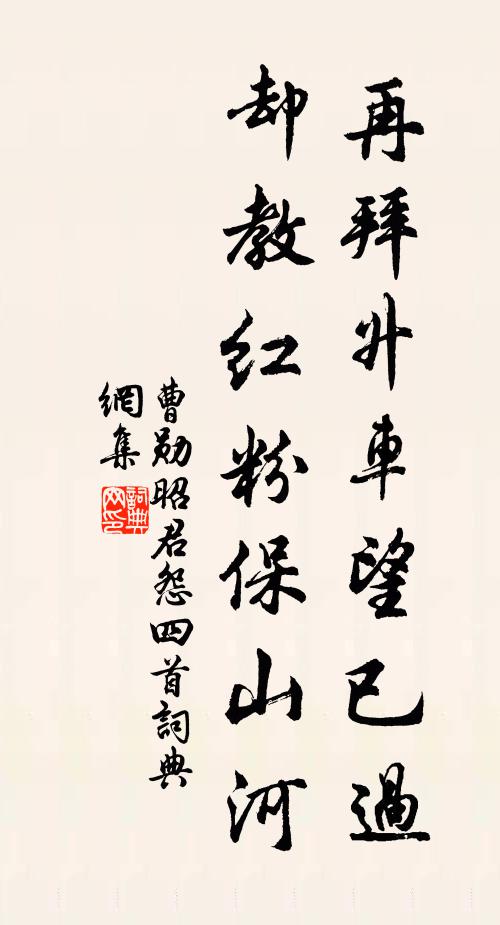 再拜升車望已過
却教紅粉保山河
曹勛昭君怨四首詞典
網集
詞典
网印